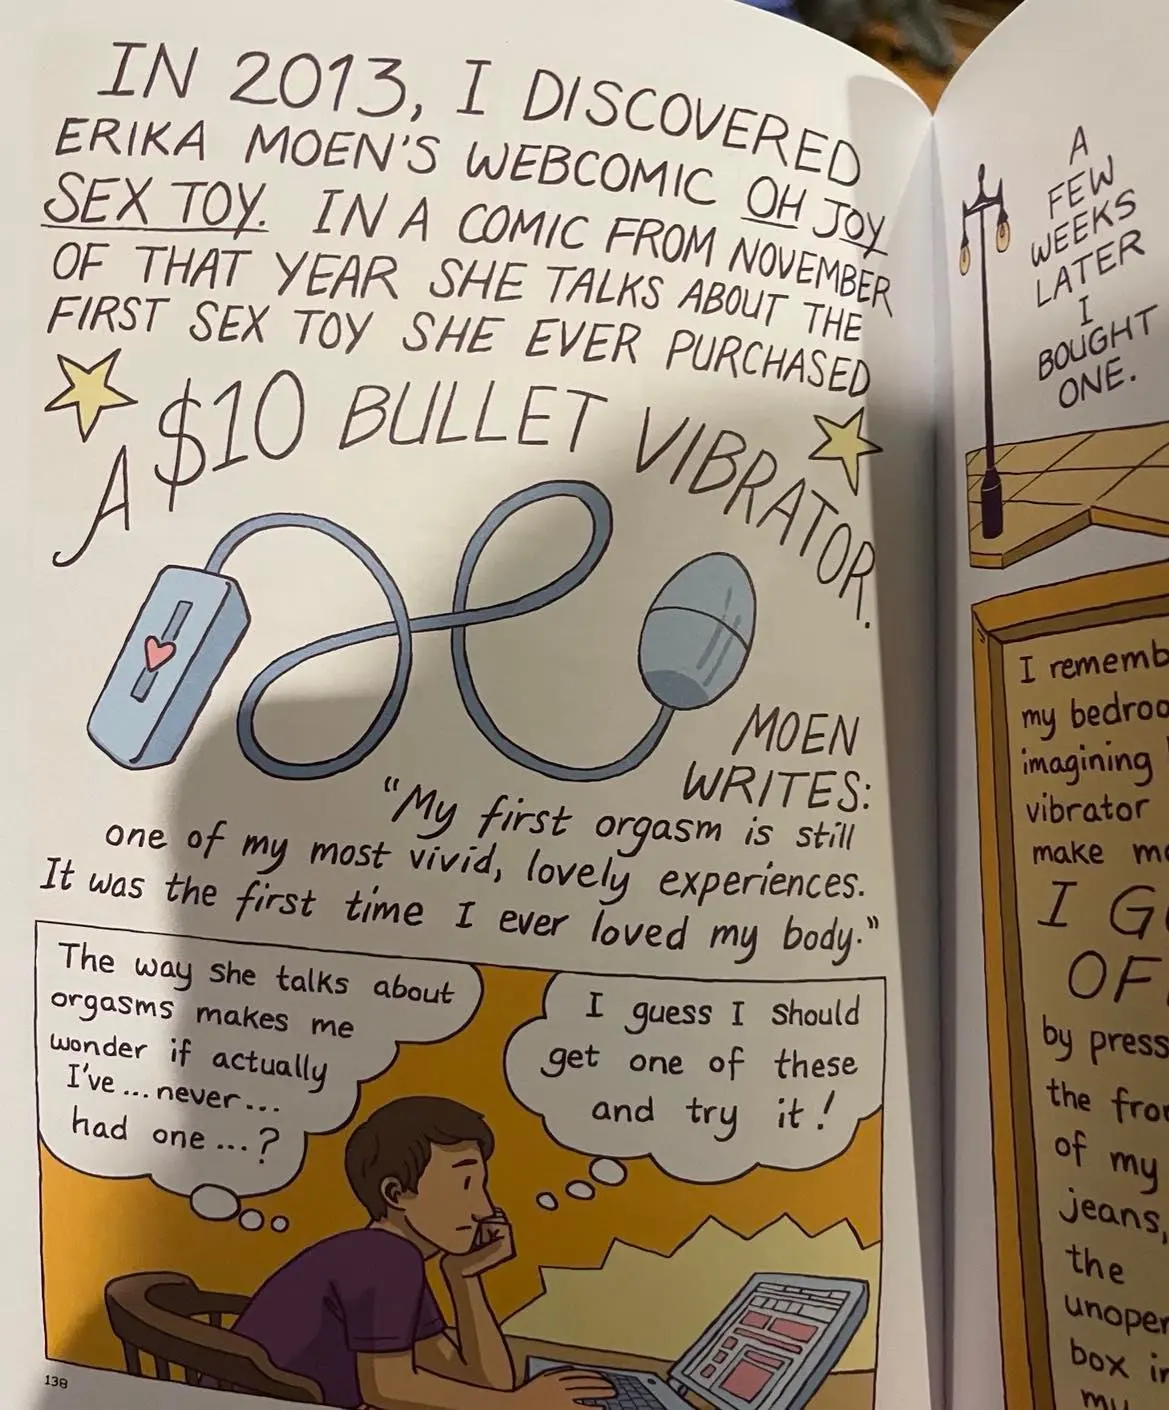 IN 2013, I DISCOVERED
ERIKA MOEN'S WEBCOMIC OH JOY
SEX TOY. IN A COMIC FROM NOVEMBER
OF THAT YEAR SHE TALKS ABOUT THE
FIRST SEX TOY SHE EVER PURCHASED
A $10 BULLET VIBRATOR.
MOEN
WRITES:
"My first orgasm is still
one of my most vivid, lovely experiences.
It was the first time I ever loved my body."
The way she talks about
orgasms makes me
wonder if actually
I've...never...
had one...?
I guess I should
get one of these
and try it!
138
A
FEW
WEEKS
LATER
I
BOUGHT
ONE.
I rememb
my bedroo
imagining
vibrator
make
I G
OF
by press
the fro
of my
jeans,
the
unoper
box in
my